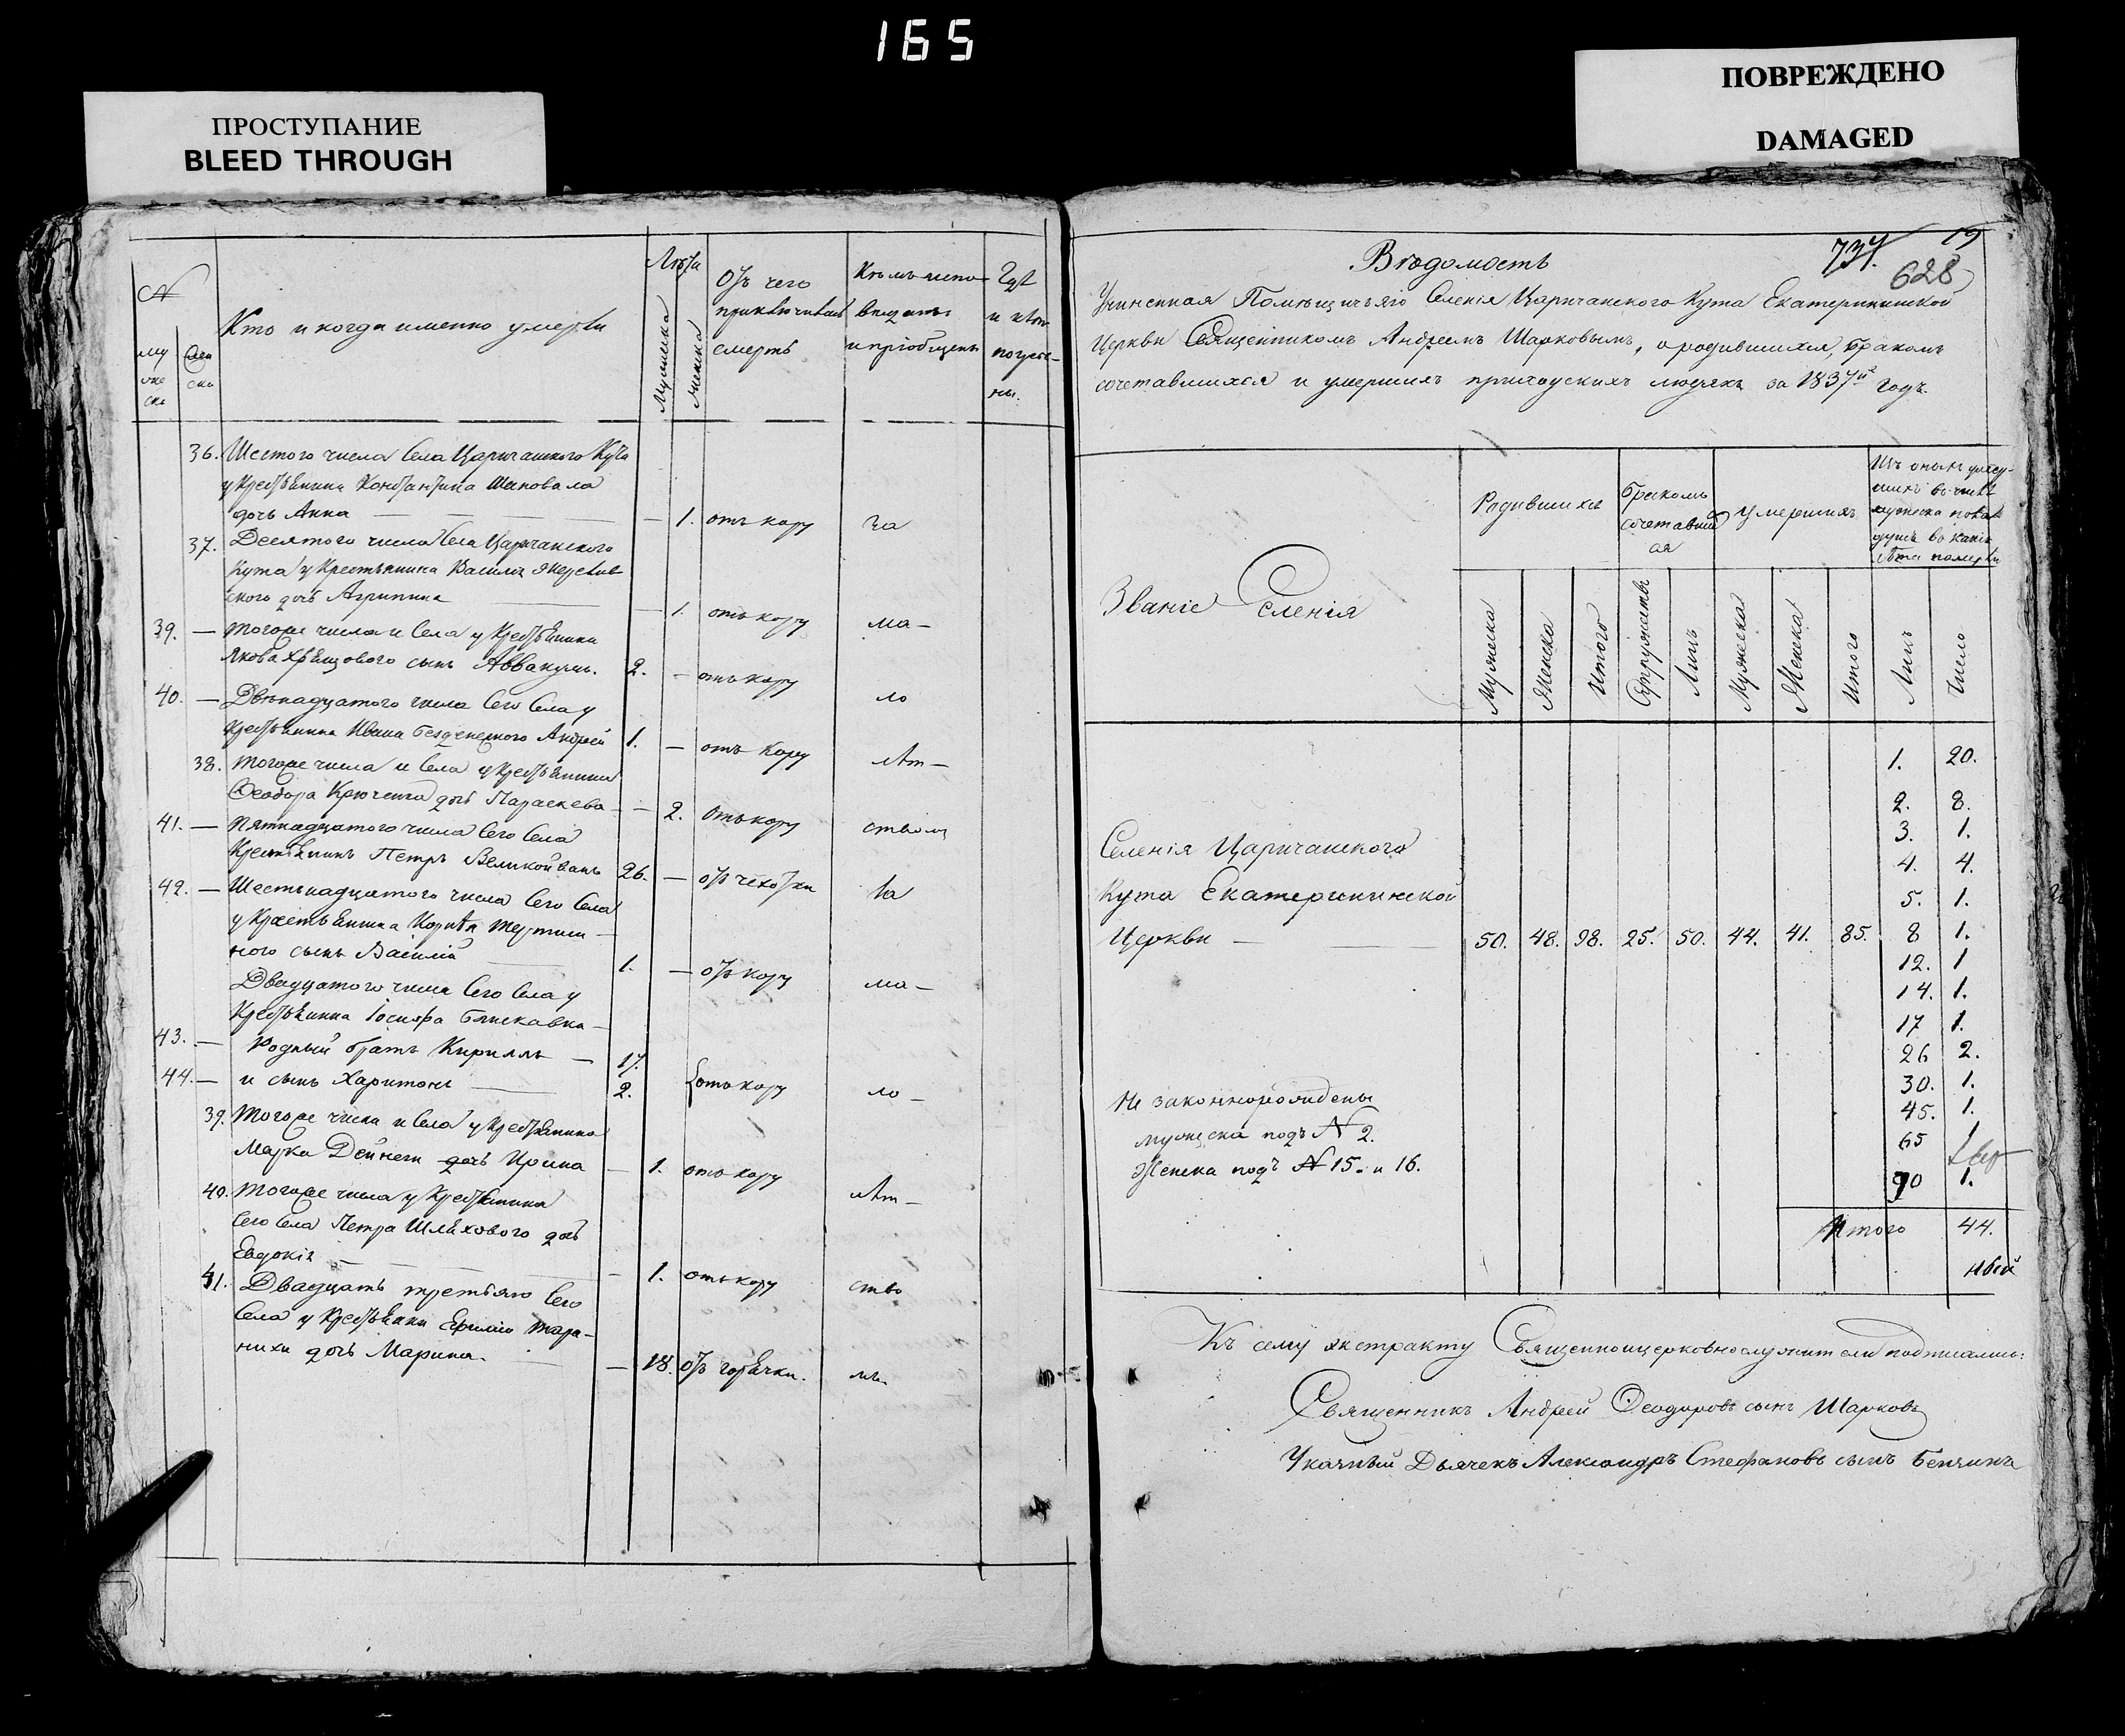 165
ПРОСТУПАНИЕ
BLEED THROUGH
ПОВРЕЖДЕНО
DAMAGED
№
муже
ска
жен
ска
Кто и когда именно умерли
Лѣта
Мужеска
Женска
Отъ чего
приключилась
смерть
Кѣмъ испо-
вѣданы
и пріобщены
Гдѣ
и кѣмъ
погребе-
ны.
36. Шестого числа Села Царичанского Кута
у Крестьянина Константина Шаповала
дочь Анна — 1. отъ кору ча
37. Десятого числа Села Царичанского
Кута у Крестьянина Василія
ского дочь Агрипина — 1. отъ кору ма—
39. — Тогоже числа и Села у Крестьянина
Якова Хрещового сынъ Аввакумъ. 2. — отъ кору ло
40. — Двенадцатого числа Сего Села у
Крестьянина Ивана Безденежного Андрей 1. — отъ кору лѣт—
38. Тогоже числа и Села у Крестьянина
Феодора Крючка дочь Параскева — — 2. отъ кору ством
41. — Пятнадцатого числа Сего Села
Крестьянинъ Петръ Великойванъ 26. — отъ чехотки
42. — Шестьнадцатого числа Сего Села
у Крестьянина Корнѣя
ного сынъ Василій 1. — отъ кору ма—
Двадцатого числа Сего Села у
Крестьянина Іосифа Блискавка—
43. — Родный братъ Кириллъ — 17.
44. — и сынъ Харитонъ — 2. отъ кору ло—
39. Тогоже числа и Села у Крестьянина
Марка Дейнеги дочь Ирина — 1. отъ кору лѣт—
40. Тогоже числа у Крестьянина
Сего Села Петра Шляхового дочь
Евдокія — 1. отъ кору ство
41. Двадцать третьяго Сего
Села у Крестьянки Ефиміи Тара-
нихи дочь Марина. — 18. отъ горячки. мъ.
737. 19
628
Вѣдомость
Учиненная Помѣщичьяго Селенія Царичанского Кута Екатерининской
Церкви Священникомъ Андреемъ Шарковымъ, о родившихся, бракомъ
сочетавшихся и умершихъ приходскихъ людяхъ за 1837й Годъ.
Званіе Селенія
Родившихся
Бракомъ
сочетавших
ся
Умершихъ
Изъ оныхъ умер-
шихъ въ числѣ
мужеска пола
душъ въ какіе
лѣта померли
Мужеска
Женска
Итого
Супружествъ
Лицъ
Мужеска
Женска
Итого
Лѣтъ
Число
Селенія Царичанского
Кута Екатерининской
Церкви — 50. 48. 98. 25. 50. 44. 41. 85.
1. 20.
2. 8.
3. 1.
4. 4.
5. 1.
8 1.
12. 1
14. 1.
17 1.
26 2.
30. 1.
45. 1.
65
90 1.
Итого 44.
Не законнорождены
мужеска подъ № 2.
Женска подъ № 15. и 16.
Къ сему экстракту Священноицерковнослужители подписались:
Священникъ Андрей Феодоровъ сынъ Шарковъ
Указный Дьячекъ Александръ Стефановъ сынъ